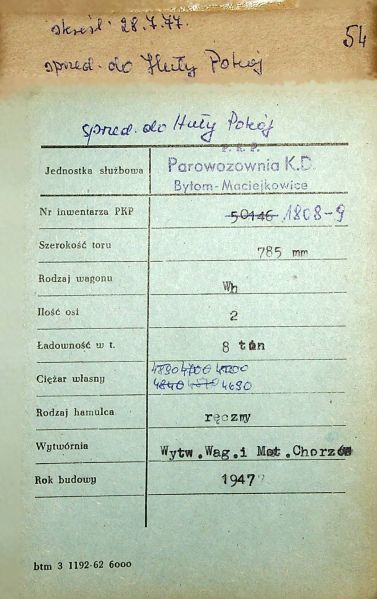 skreśl. 28.7.77.
54
sprzed. do Huty Pokój
sprzed. do Huty Pokój
Jednostka służbowa P.K.P.
Parowozownia K.D.
Bytom-Maciejkowice
Nr inwentarza PKP 50146 1808-9
Szerokość toru 785 mm
Rodzaj wagonu Wh
Ilość osi 2
Ładowność w t. 8 ton
Ciężar własny 4830 4700
4840 4690
Rodzaj hamulca ręczny
Wytwórnia Wytw.Wag.i Mot.Chorzów
Rok budowy 1947
btm 3 1192-62 6000